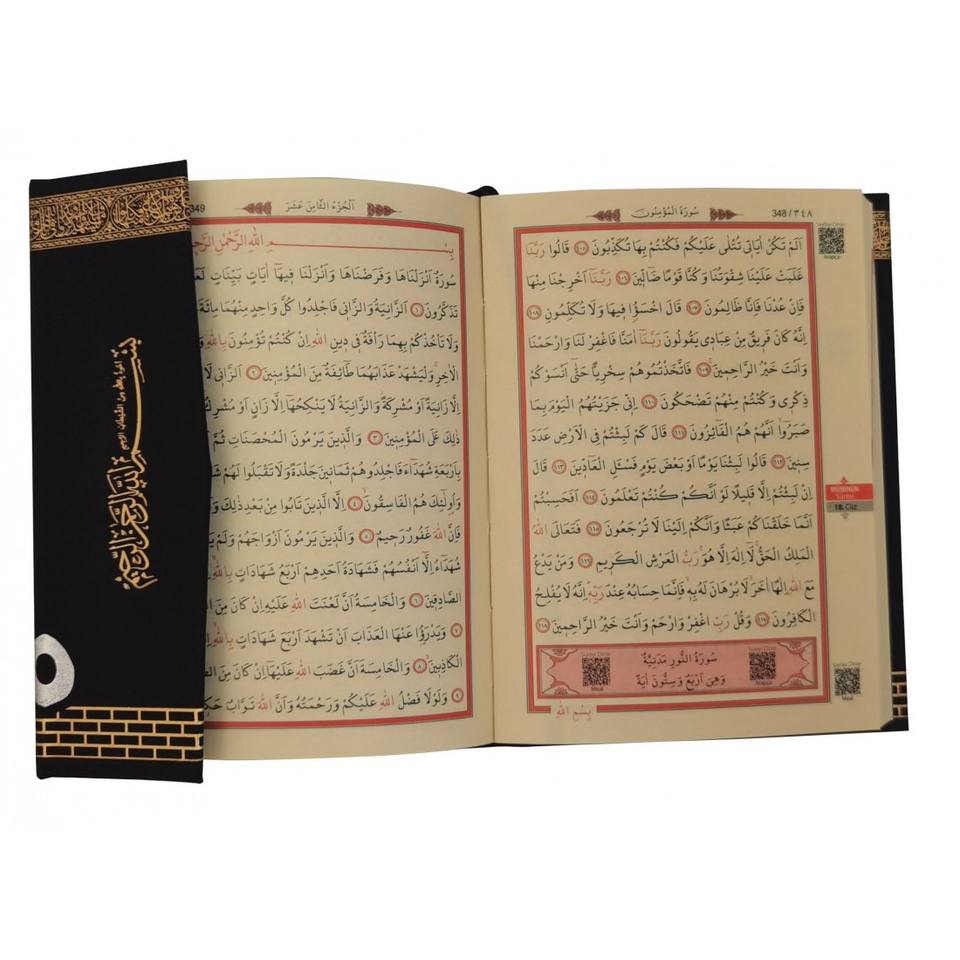 سُورَةُ الْمُؤْمِنُونَ
348 / ٣٤٨
اَلَمْ تَكُنْ اٰيَاتٖى تُتْلٰى عَلَيْكُمْ فَكُنْتُمْ بِهَا تُكَذِّبُونَ ﴿١٠٥﴾ قَالُوا رَبَّنَا
غَلَبَتْ عَلَيْنَا شِقْوَتُنَا وَكُنَّا قَوْمًا ضَٓالّٖينَ ﴿١٠٦﴾ رَبَّنَٓا اَخْرِجْنَا مِنْهَا
فَاِنْ عُدْنَا فَاِنَّا ظَالِمُونَ ﴿١٠٧﴾ قَالَ اخْسَؤُ۫ا فٖيهَا وَلَا تُكَلِّمُونِ ﴿١٠٨﴾
اِنَّهُ كَانَ فَرٖيقٌ مِنْ عِبَادٖى يَقُولُونَ رَبَّنَٓا اٰمَنَّا فَاغْفِرْ لَنَا وَارْحَمْنَا
وَاَنْتَ خَيْرُ الرَّاحِمٖينَ ﴿١٠٩﴾ فَاتَّخَذْتُمُوهُمْ سِخْرِيًّا حَتّٰٓى اَنْسَوْكُمْ
ذِكْرٖى وَكُنْتُمْ مِنْهُمْ تَضْحَكُونَ ﴿١١٠﴾ اِنّٖى جَزَيْتُهُمُ الْيَوْمَ بِمَا
صَبَرُٓوا اَنَّهُمْ هُمُ الْفَٓائِزُونَ ﴿١١١﴾ قَالَ كَمْ لَبِثْتُمْ فِى الْاَرْضِ عَدَدَ
سِنٖينَ ﴿١١٢﴾ قَالُوا لَبِثْنَا يَوْمًا اَوْ بَعْضَ يَوْمٍ فَسْـَٔلِ الْعَٓادّٖينَ ﴿١١٣﴾ قَالَ
اِنْ لَبِثْتُمْ اِلَّا قَلٖيلًا لَوْ اَنَّكُمْ كُنْتُمْ تَعْلَمُونَ ﴿١١٤﴾ اَفَحَسِبْتُمْ
اَنَّمَا خَلَقْنَاكُمْ عَبَثًا وَاَنَّكُمْ اِلَيْنَا لَا تُرْجَعُونَ ﴿١١٥﴾ فَتَعَالَى اللّٰهُ
الْمَلِكُ الْحَقُّ لَٓا اِلٰهَ اِلَّا هُوَ رَبُّ الْعَرْشِ الْكَرٖيمِ ﴿١١٦﴾ وَمَنْ يَدْعُ
مَعَ اللّٰهِ اِلٰهًا اٰخَرَ لَا بُرْهَانَ لَهُ بِهٖ فَاِنَّمَا حِسَابُهُ عِنْدَ رَبِّهٖ اِنَّهُ لَا يُفْلِحُ
الْكَافِرُونَ ﴿١١٧﴾ وَقُلْ رَبِّ اغْفِرْ وَارْحَمْ وَاَنْتَ خَيْرُ الرَّاحِمٖينَ ﴿١١٨﴾
سُورَةُ النُّورِ مَدَنِيَّةٌ
وَهِىَ اَرْبَعٌ وَسِتُّونَ اٰيَةً
بِسْمِ اللّٰهِ
Arapça
MÜMİNUN
Suresi
18. Cüz
Meal
Meal
Arapça
349
اَلْجُزْءُ الثَّامِنَ عَشَرَ
بِسْمِ اللّٰهِ الرَّحْمٰنِ
سُورَةٌ اَنْزَلْنَاهَا وَفَرَضْنَاهَا وَاَنْزَلْنَا فٖيهَٓا اٰيَاتٍ بَيِّنَاتٍ
تَذَكَّرُونَ ﴿١﴾ اَلزَّانِيَةُ وَالزَّانٖى فَاجْلِدُوا كُلَّ وَاحِدٍ مِنْهُمَا مِائَةَ
وَلَا تَأْخُذْكُمْ بِهِمَا رَأْفَةٌ فٖى دٖينِ اللّٰهِ اِنْ كُنْتُمْ تُؤْمِنُونَ بِاللّٰهِ
الْاٰخِرِ وَلْيَشْهَدْ عَذَابَهُمَا طَٓائِفَةٌ مِنَ الْمُؤْمِنٖينَ ﴿٢﴾ اَلزَّانٖى
اِلَّا زَانِيَةً اَوْ مُشْرِكَةً وَالزَّانِيَةُ لَا يَنْكِحُهَٓا اِلَّا زَانٍ اَوْ
ذٰلِكَ عَلَى الْمُؤْمِنٖينَ ﴿٣﴾ وَالَّذٖينَ يَرْمُونَ الْمُحْصَنَاتِ ثُمَّ
بِاَرْبَعَةِ شُهَدَٓاءَ فَاجْلِدُوهُمْ ثَمَانٖينَ جَلْدَةً وَلَا تَقْبَلُوا لَهُمْ
وَاُولٰٓئِكَ هُمُ الْفَاسِقُونَ ﴿٤﴾ اِلَّا الَّذٖينَ تَابُوا مِنْ بَعْدِ ذٰلِكَ
فَاِنَّ اللّٰهَ غَفُورٌ رَحٖيمٌ ﴿٥﴾ وَالَّذٖينَ يَرْمُونَ اَزْوَاجَهُمْ وَلَمْ
شُهَدَٓاءُ اِلَّٓا اَنْفُسُهُمْ فَشَهَادَةُ اَحَدِهِمْ اَرْبَعُ شَهَادَاتٍ بِاللّٰهِ
الصَّادِقٖينَ ﴿٦﴾ وَالْخَامِسَةُ اَنَّ لَعْنَتَ اللّٰهِ عَلَيْهِ اِنْ كَانَ مِنَ
﴿٧﴾ وَيَدْرَؤُا عَنْهَا الْعَذَابَ اَنْ تَشْهَدَ اَرْبَعَ شَهَادَاتٍ بِاللّٰهِ
الْكَاذِبٖينَ ﴿٨﴾ وَالْخَامِسَةَ اَنَّ غَضَبَ اللّٰهِ عَلَيْهَٓا اِنْ كَانَ مِنَ
﴿٩﴾ وَلَوْلَا فَضْلُ اللّٰهِ عَلَيْكُمْ وَرَحْمَتُهُ وَاَنَّ اللّٰهَ تَوَّابٌ
اعوذ بالله من الشيطان الرجيم
بسم الله الرحمن الرحيم